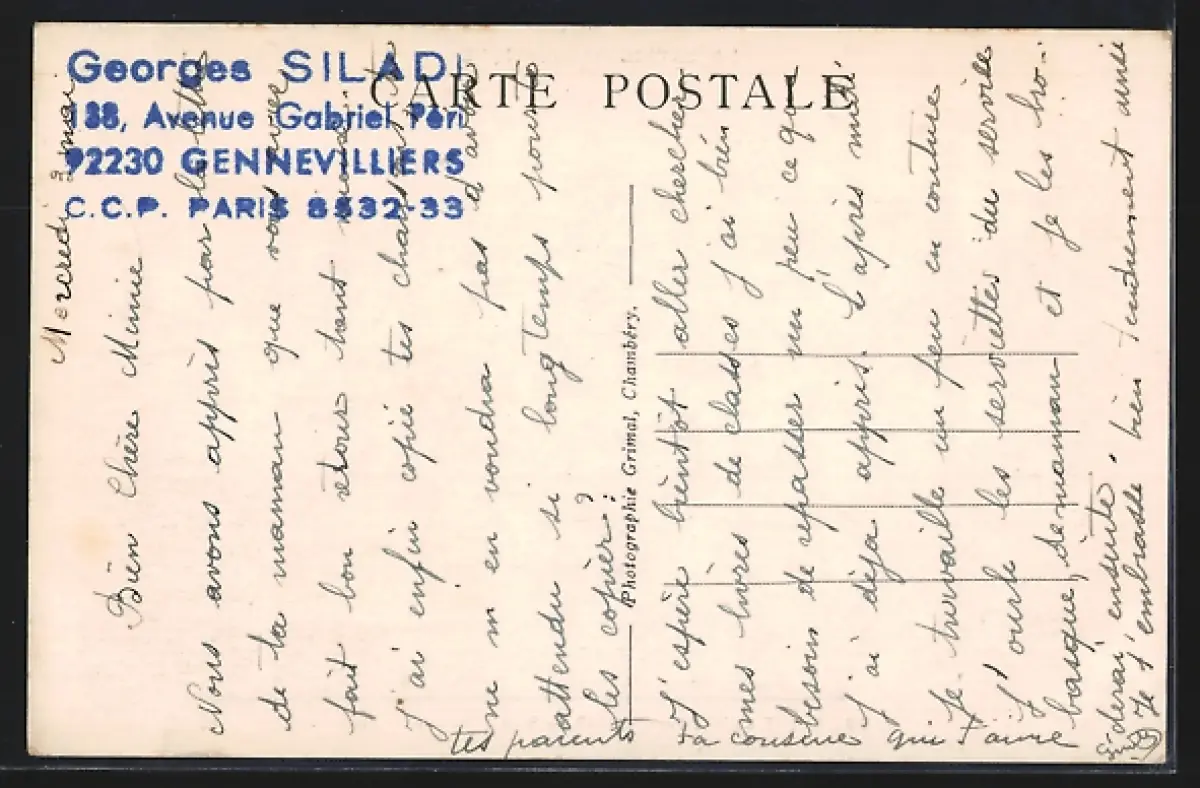 Georges SILADI
138, Avenue Gabriel Péri
92230 GENNEVILLIERS
C.C.P. PARIS 8832-33
CARTE POSTALE
Photographie Grimal, Chambéry.
Mercredi 3 mai
Bien Chère Mimie
Nous avons appris par la lettre
de ta maman que vous avez
fait bon retour tant
j'ai enfin copié tes chansons
tu ne m'en voudra pas d'avoir
attendu si longtemps pour te
les copier?
J'espère bientôt aller chercher
mes livres de classes j'ai bien
besoin de repasser un peu ce que
j'ai déja appris. L'après midi
je travaille un peu en couture
J'ourle les serviettes du service
basque, de maman et je les bro-
derai ensuite.
Je t'embrasse bien tendrement ainsi
tes parents
Ta cousine qui t'aime